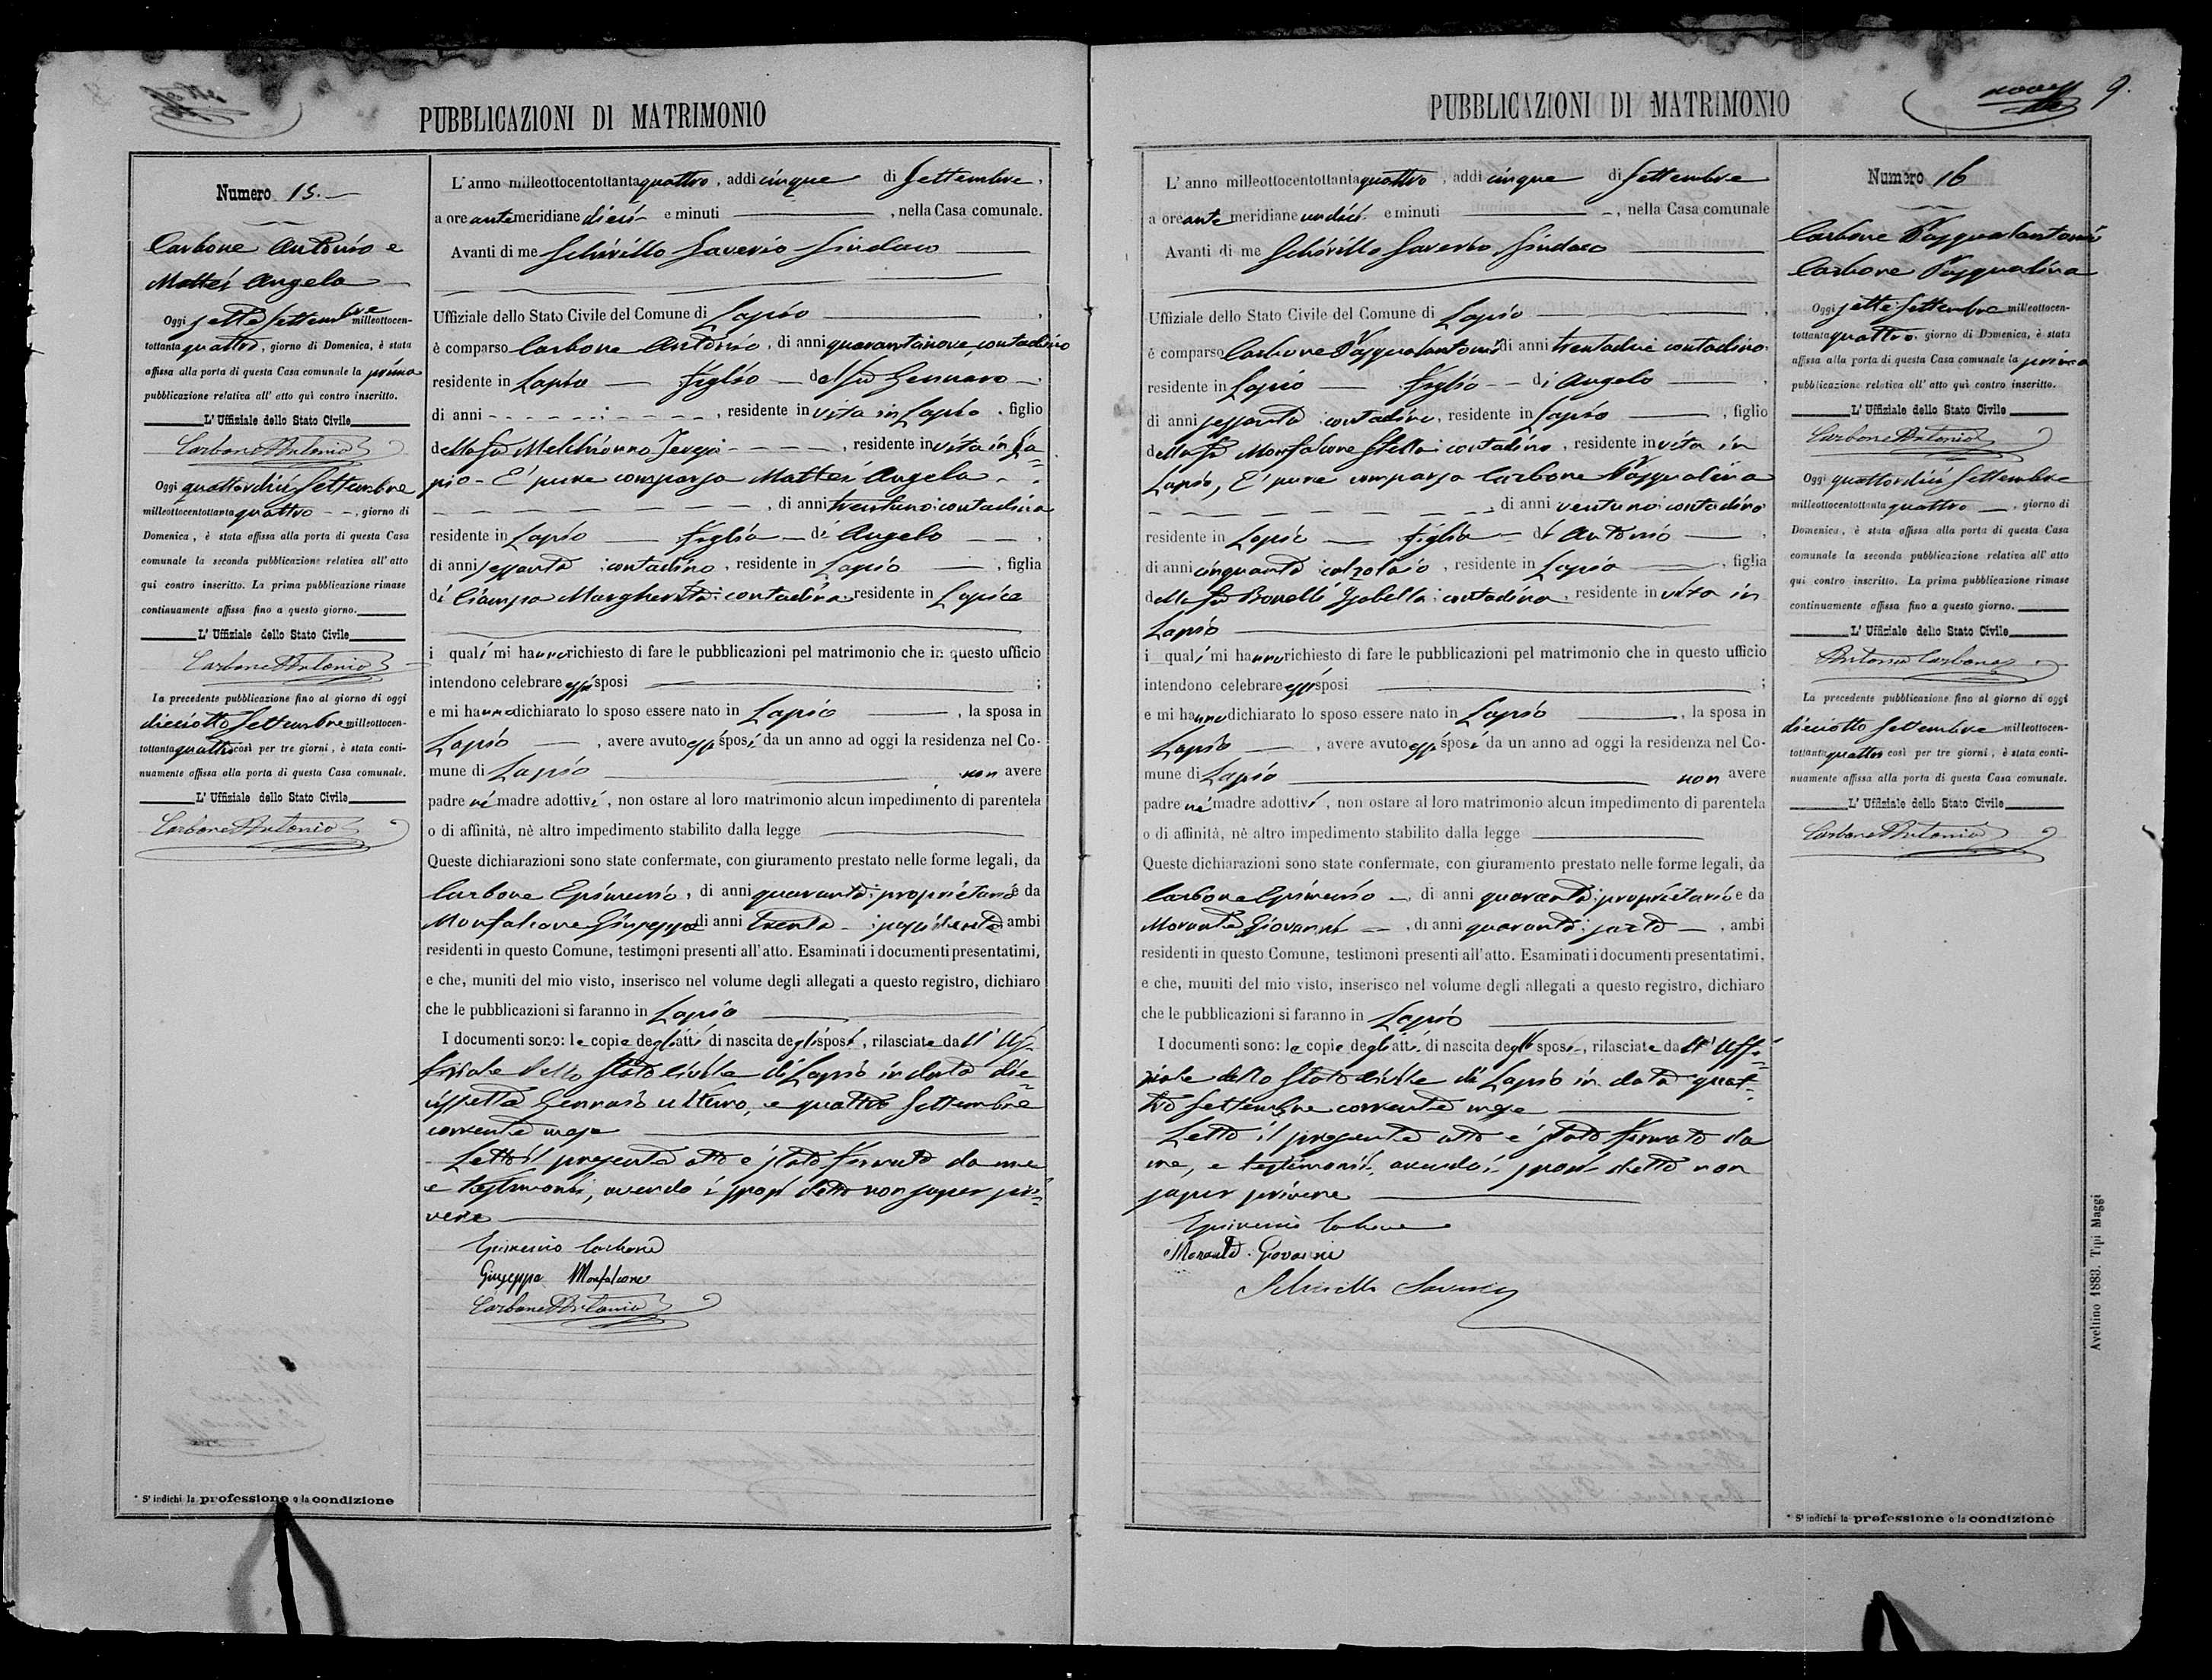 PUBBLICAZIONI DI MATRIMONIO
Numero 15.
Carbone Antonio e
Mattei Angela
Oggi sette Settembre milleottocen-
tottantaquattro, giorno di Domenica, è stata
affissa alla porta di questa Casa comunale la prima
pubblicazione relativa all' atto quì contro inscritto.
L' Uffiziale dello Stato Civile
Carbone Antonio
Oggi quattordici Settembre
milleottocentottantaquattro, giorno di
Domenica, è stata affissa alla porta di questa Casa
comunale la seconda pubblicazione relativa all' atto
quì contro inscritto. La prima pubblicazione rimase
continuamente affissa fino a questo giorno.
L' Uffiziale dello Stato Civile
Carbone Antonio
La precedente pubblicazione fino al giorno di oggi
diciotto Settembre milleottocen-
tottantaquattro così per tre giorni, è stata conti-
nuamente affissa alla porta di questa Casa comunale.
L' Uffiziale dello Stato Civile
Carbone Antonio
* S' indichi la professione o la condizione
L' anno milleottocentottantaquattro, addi cinque di Settembre,
a ore antemeridiane dieci e minuti , nella Casa comunale.
Avanti di me Schirillo Saverio Sindaco
Uffiziale dello Stato Civile del Comune di Lapio ,
è comparso Carbone Antonio, di anni quarantanove, contadino
residente in Lapio figlio del fu Gennaro
di anni , residente in vita in Lapio, figlio
della fu Melchionno , residente in vita in La=
pio - E' pure comparsa Mattei Angela
, di anni trentuno contadina
residente in Lapio figlia di Angelo ,
di anni sessanta contadino, residente in Lapio , figlia
di Ciampa Margherita: contadina residente in Lapio
i quali mi hanno richiesto di fare le pubblicazioni pel matrimonio che in questo ufficio
intendono celebrare essi sposi ;
e mi hanno dichiarato lo sposo essere nato in Lapio , la sposa in
Lapio , avere avuto essi sposi da un anno ad oggi la residenza nel Co-
mune di Lapio non avere
padre né madre adottivi, non ostare al loro matrimonio alcun impedimento di parentela
o di affinità, nè altro impedimento stabilito dalla legge
Queste dichiarazioni sono state confermate, con giuramento prestato nelle forme legali, da
Carbone Epimenio, di anni quaranta: proprietario e da
Monfalcone Giuseppe di anni trenta : possidente ambi
residenti in questo Comune, testimoni presenti all' atto. Esaminati i documenti presentatimi,
e che, muniti del mio visto, inserisco nel volume degli allegati a questo registro, dichiaro
che le pubblicazioni si faranno in Lapio
I documenti sono: le copie degli atti di nascita degli sposi, rilasciate dall' Uf-
fiziale dello Stato Civile di Lapio in data die=
cissette Gennaio ultimo, e quattro Settembre
corrente mese
Letto il presente atto è stato firmato da me
e testimoni, avendo i sposi detto non saper scri=
vere
Epimenio Carbone
Giuseppe Monfalcone
Carbone Antonio
PUBBLICAZIONI DI MATRIMONIO
nove
9.
L' anno milleottocentottantaquattro, addi cinque di Settembre
a ore ante meridiane undici e minuti , nella Casa comunale
Avanti di me Schirillo Saverio Sindaco
Uffiziale dello Stato Civile del Comune di Lapio ,
è comparso Carbone Pasqualantonio di anni trentadue contadino
residente in Lapio figlio di Angelo ,
di anni sessanta contadino, residente in Lapio , figlio
della fu Monfalcone Stella: contadina, residente in vita in
Lapio, E' pure comparsa Carbone Pasqualina
, di anni ventuno: contadina
residente in Lapio figlia di Antonio ,
di anni cinquanta calzolaio, residente in Lapio , figlia
della fu Bonelli Isabella: contadina, residente in vita in
Lapio
i quali mi hanno richiesto di fare le pubblicazioni pel matrimonio che in questo ufficio
intendono celebrare essi sposi ;
e mi hanno dichiarato lo sposo essere nato in Lapio , la sposa in
Lapio , avere avuto essi sposi da un anno ad oggi la residenza nel Co-
mune di Lapio non avere
padre né madre adottivi, non ostare al loro matrimonio alcun impedimento di parentela
o di affinità, nè altro impedimento stabilito dalla legge
Queste dichiarazioni sono state confermate, con giuramento prestato nelle forme legali, da
Carbone Epimenio , di anni quaranta: proprietario e da
Morante Giovanni , di anni quaranta: sarto , ambi
residenti in questo Comune, testimoni presenti all' atto. Esaminati i documenti presentatimi,
e che, muniti del mio visto, inserisco nel volume degli allegati a questo registro, dichiaro
che le pubblicazioni si faranno in Lapio
I documenti sono: le copie degli atti di nascita degli sposi, rilasciate dall' Uffi=
ziale dello Stato Civile di Lapio in data quat=
tro Settembre corrente mese
Letto il presente atto è stato firmato da
me, e testimonii, avendo i sposi detto non
saper scrivere
Epimenio Carbone
Morante Giovanni
Schirillo Saverio
Numero 16
Carbone Pasqualantonio
Carbone Pasqualina
Oggi sette Settembre milleottocen-
tottantaquattro giorno di Domenica, è stata
affissa alla porta di questa Casa comunale la prima
pubblicazione relativa all' atto quì contro inscritto.
L' Uffiziale dello Stato Civile
Carbone Antonio
Oggi quattordici Settembre
milleottocentottantaquattro , giorno di
Domenica, è stata affissa alla porta di questa Casa
comunale la seconda pubblicazione relativa all' atto
quì contro inscritto. La prima pubblicazione rimase
continuamente affissa fino a questo giorno.
L' Uffiziale dello Stato Civile
Antonio Carbone
La precedente pubblicazione fino al giorno di oggi
diciotto Settembre milleottocen-
tottantaquattro così per tre giorni, è stata conti-
nuamente affissa alla porta di questa Casa comunale.
L' Uffiziale dello Stato Civile
Carbone Antonio
* S' indichi la professione o la condizione
Avellino 1883. Tipi Maggi